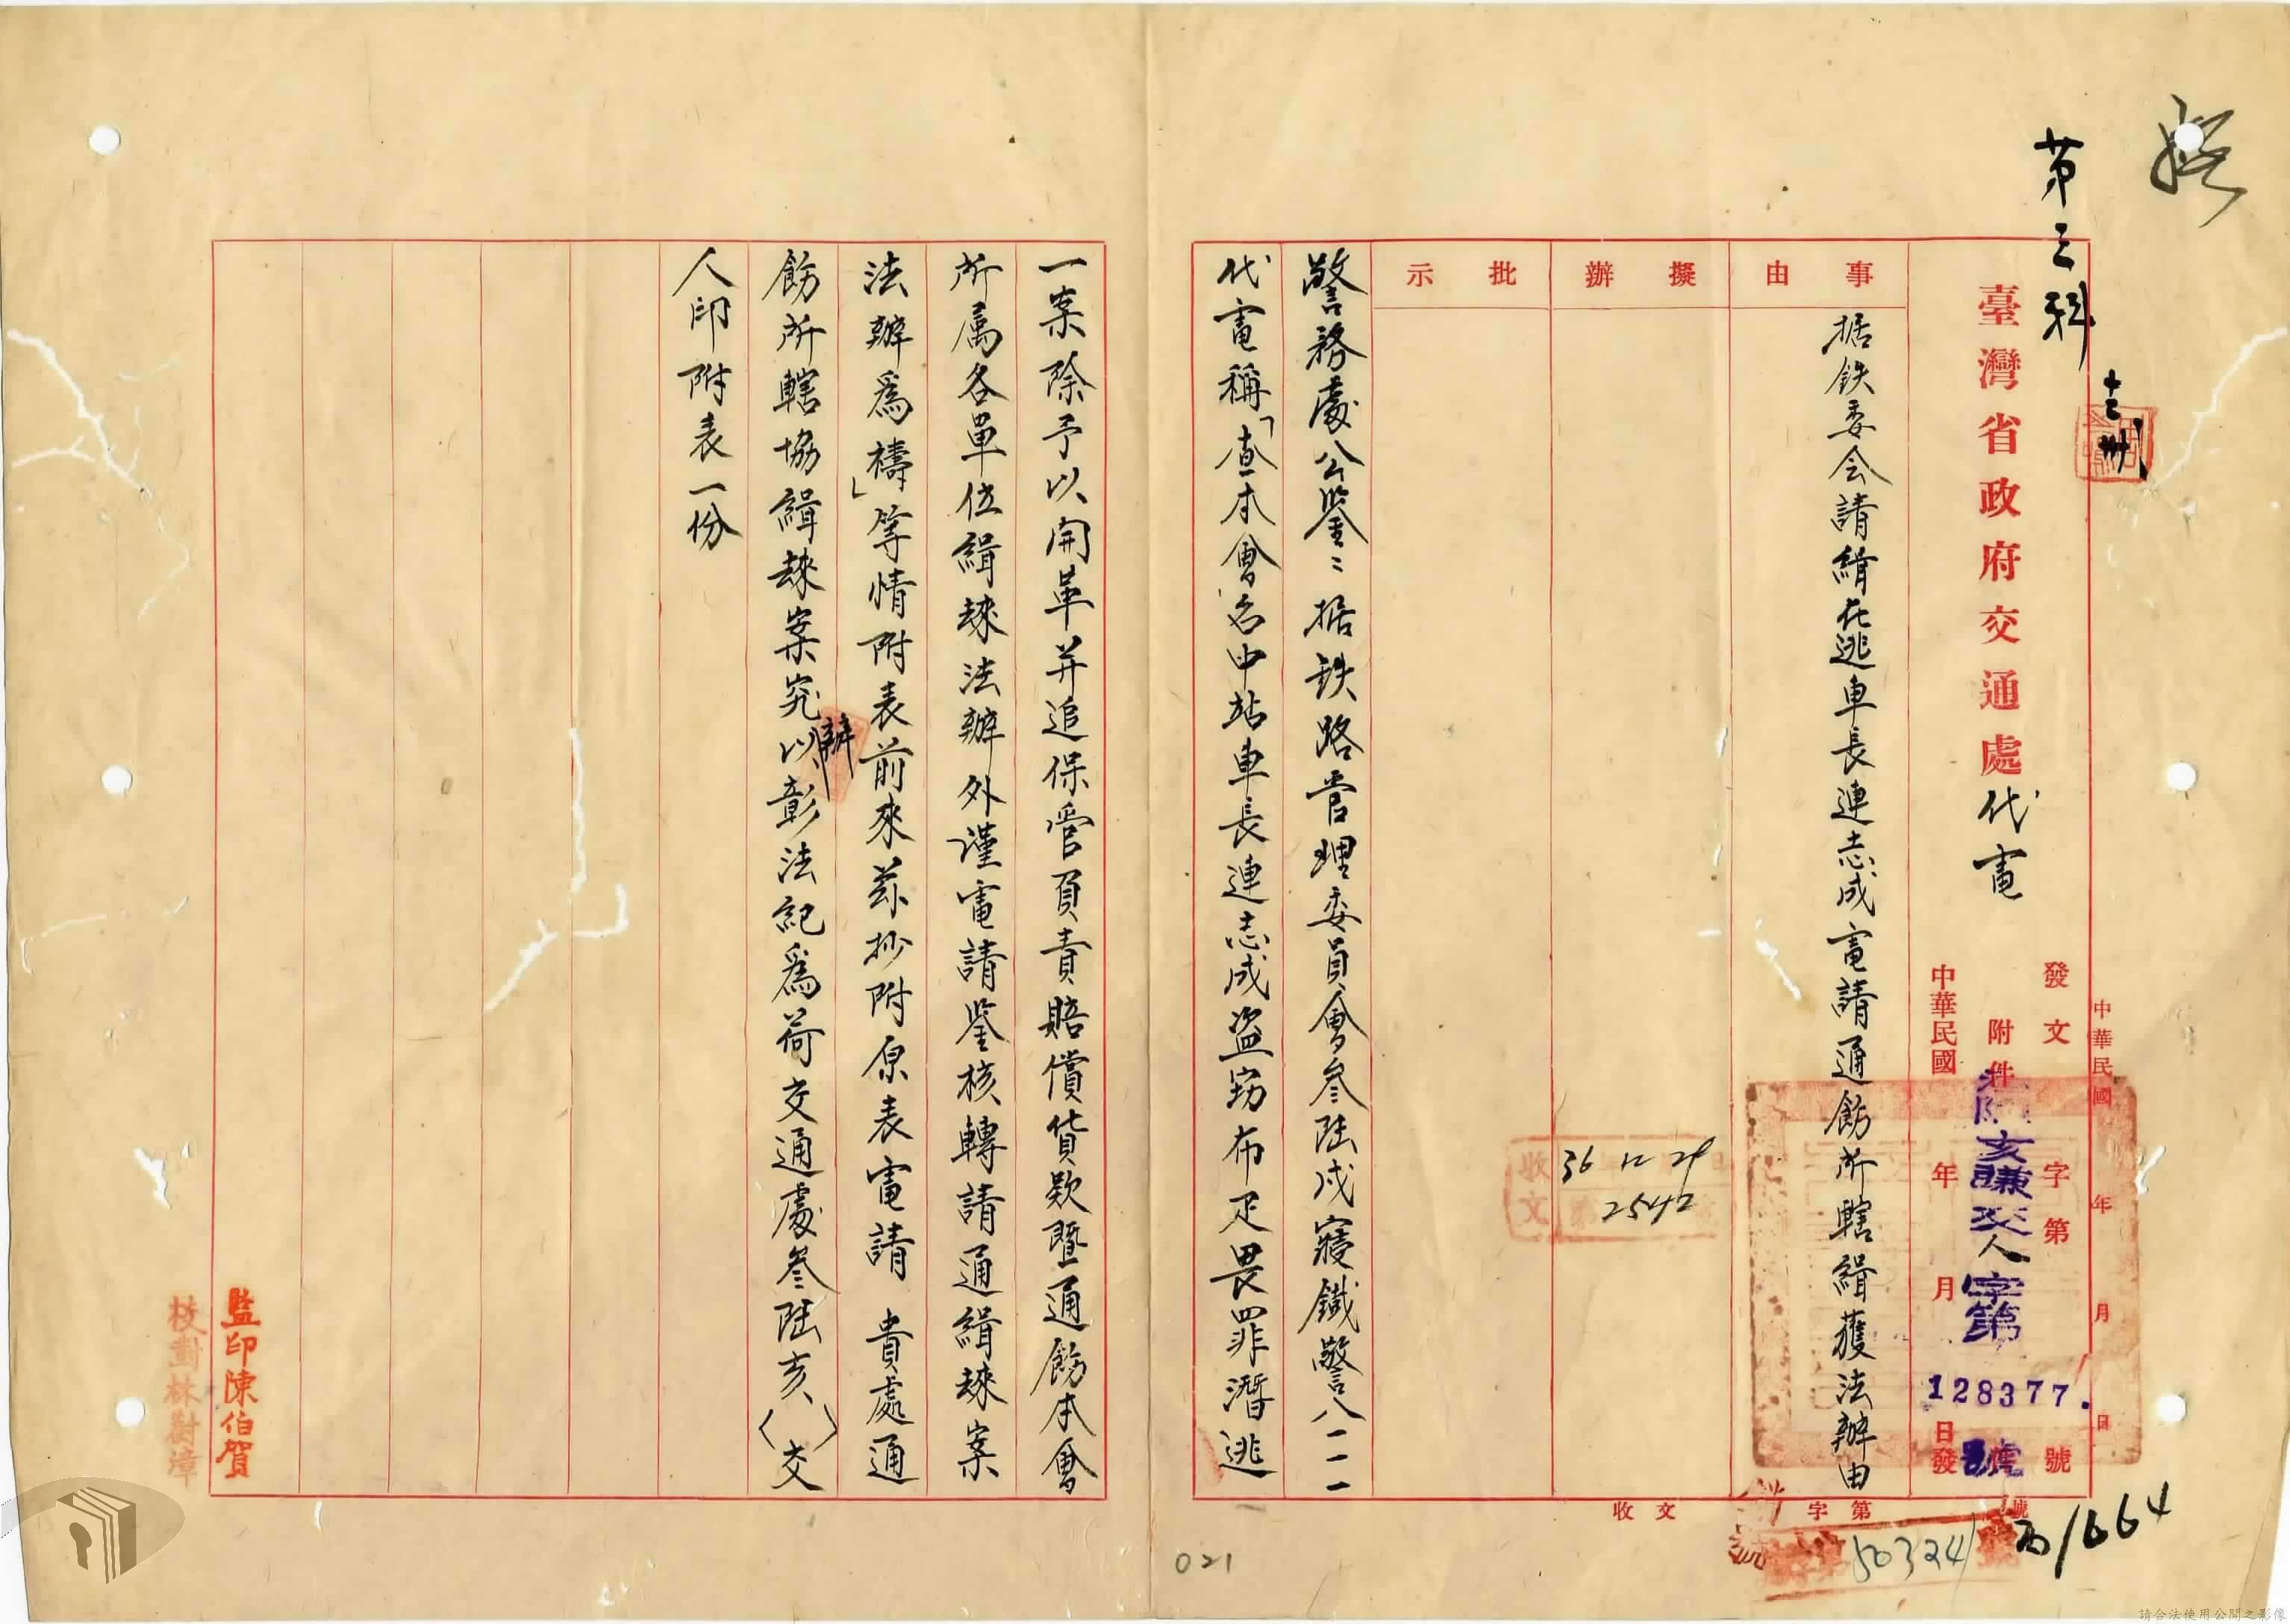 第三科
臺灣省政府交通處代電
發文 字第 號
附件
中華民國 年 月 日發
中華民國 年 月 日
亥賺交人字第
128377.
號
事由
据鉄委会請緝在逃車長連志成電請通飭所轄緝獲法辦由
擬辦
批示
36 12 29
2542
收文
警務處公鑒:据鉄路管理委員會叁陸戍寢鐵警八一一一
代電稱「查本會台中站車長連志成盜窃布疋畏罪潛逃
一案除予以開革并追保管負責賠償貨款暨通飭本會
所属各單位緝逮法辦外謹電請鑒核轉請通緝逮案
法辦為禱」等情附表前來茲抄附原表電請 貴處通
飭所轄協緝逮案究辦以彰法紀為荷交通處叁陸亥〈 〉交
人印附表一份
監印陳伯賀
校對林樹漳
收文 字第 號
50324
丙1664
021
請合法使用公開之影像